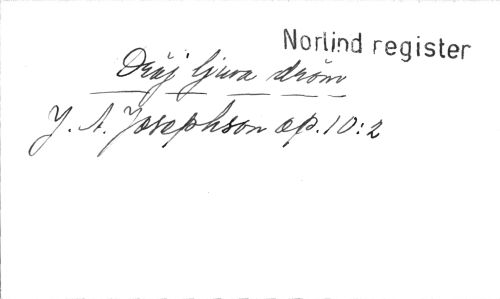 Norlind register
Dröj ljuva dröm
J. A. Josephson op. 10:2